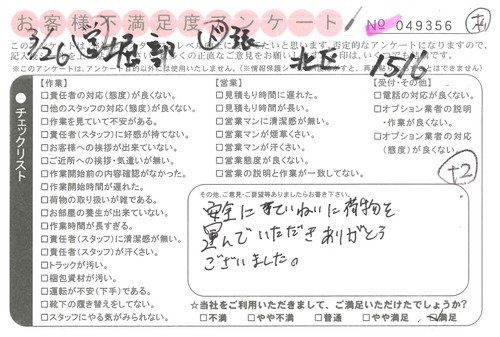 お客様不満足度アンケート
№ 049356
3/26
1516
チェックリスト
【作業】
□責任者の対応(態度)が良くない。
□他のスタッフの対応(態度)が良くない。
□作業を見ていて不安がある。
□責任者(スタッフ)に好感が持てない。
□お客様への挨拶が出来ていない。
□ご近所への挨拶・気遣いが無い。
□作業開始前の内容確認がなかった。
□作業開始時間が遅れた。
□荷物の取り扱いが雑である。
□お部屋の養生が出来ていない。
□作業時間が長すぎる。
□責任者(スタッフ)に清潔感が無い。
□責任者(スタッフ)が汗くさい。
□トラックが汚い。
□梱包資材が汚い。
□運転が不安(下手)である。
□靴下の履き替えをしてない。
□スタッフにやる気がみられない。
【営業】
□見積もり時間に遅れた。
□見積もり時間が長い。
□営業マンに清潔感が無い。
□営業マンが煙草くさい。
□営業マンが汗くさい。
□営業態度が良くない。
□営業の説明と作業が一致してない。
【受付・その他】
□電話の対応が良くない。
□オプション業者の説明
・作業が良くない。
□オプション業者の対応
(態度)が良くない。
+2
その他、ご意見・ご要望等ありましたらお書き下さい。
安全にていねいに荷物を
運んでいただきありがとう
ございました。
☆当社をご利用いただきまして、ご満足いただけたでしょうか?
□不満 □やや不満 □普通 □やや満足 満足